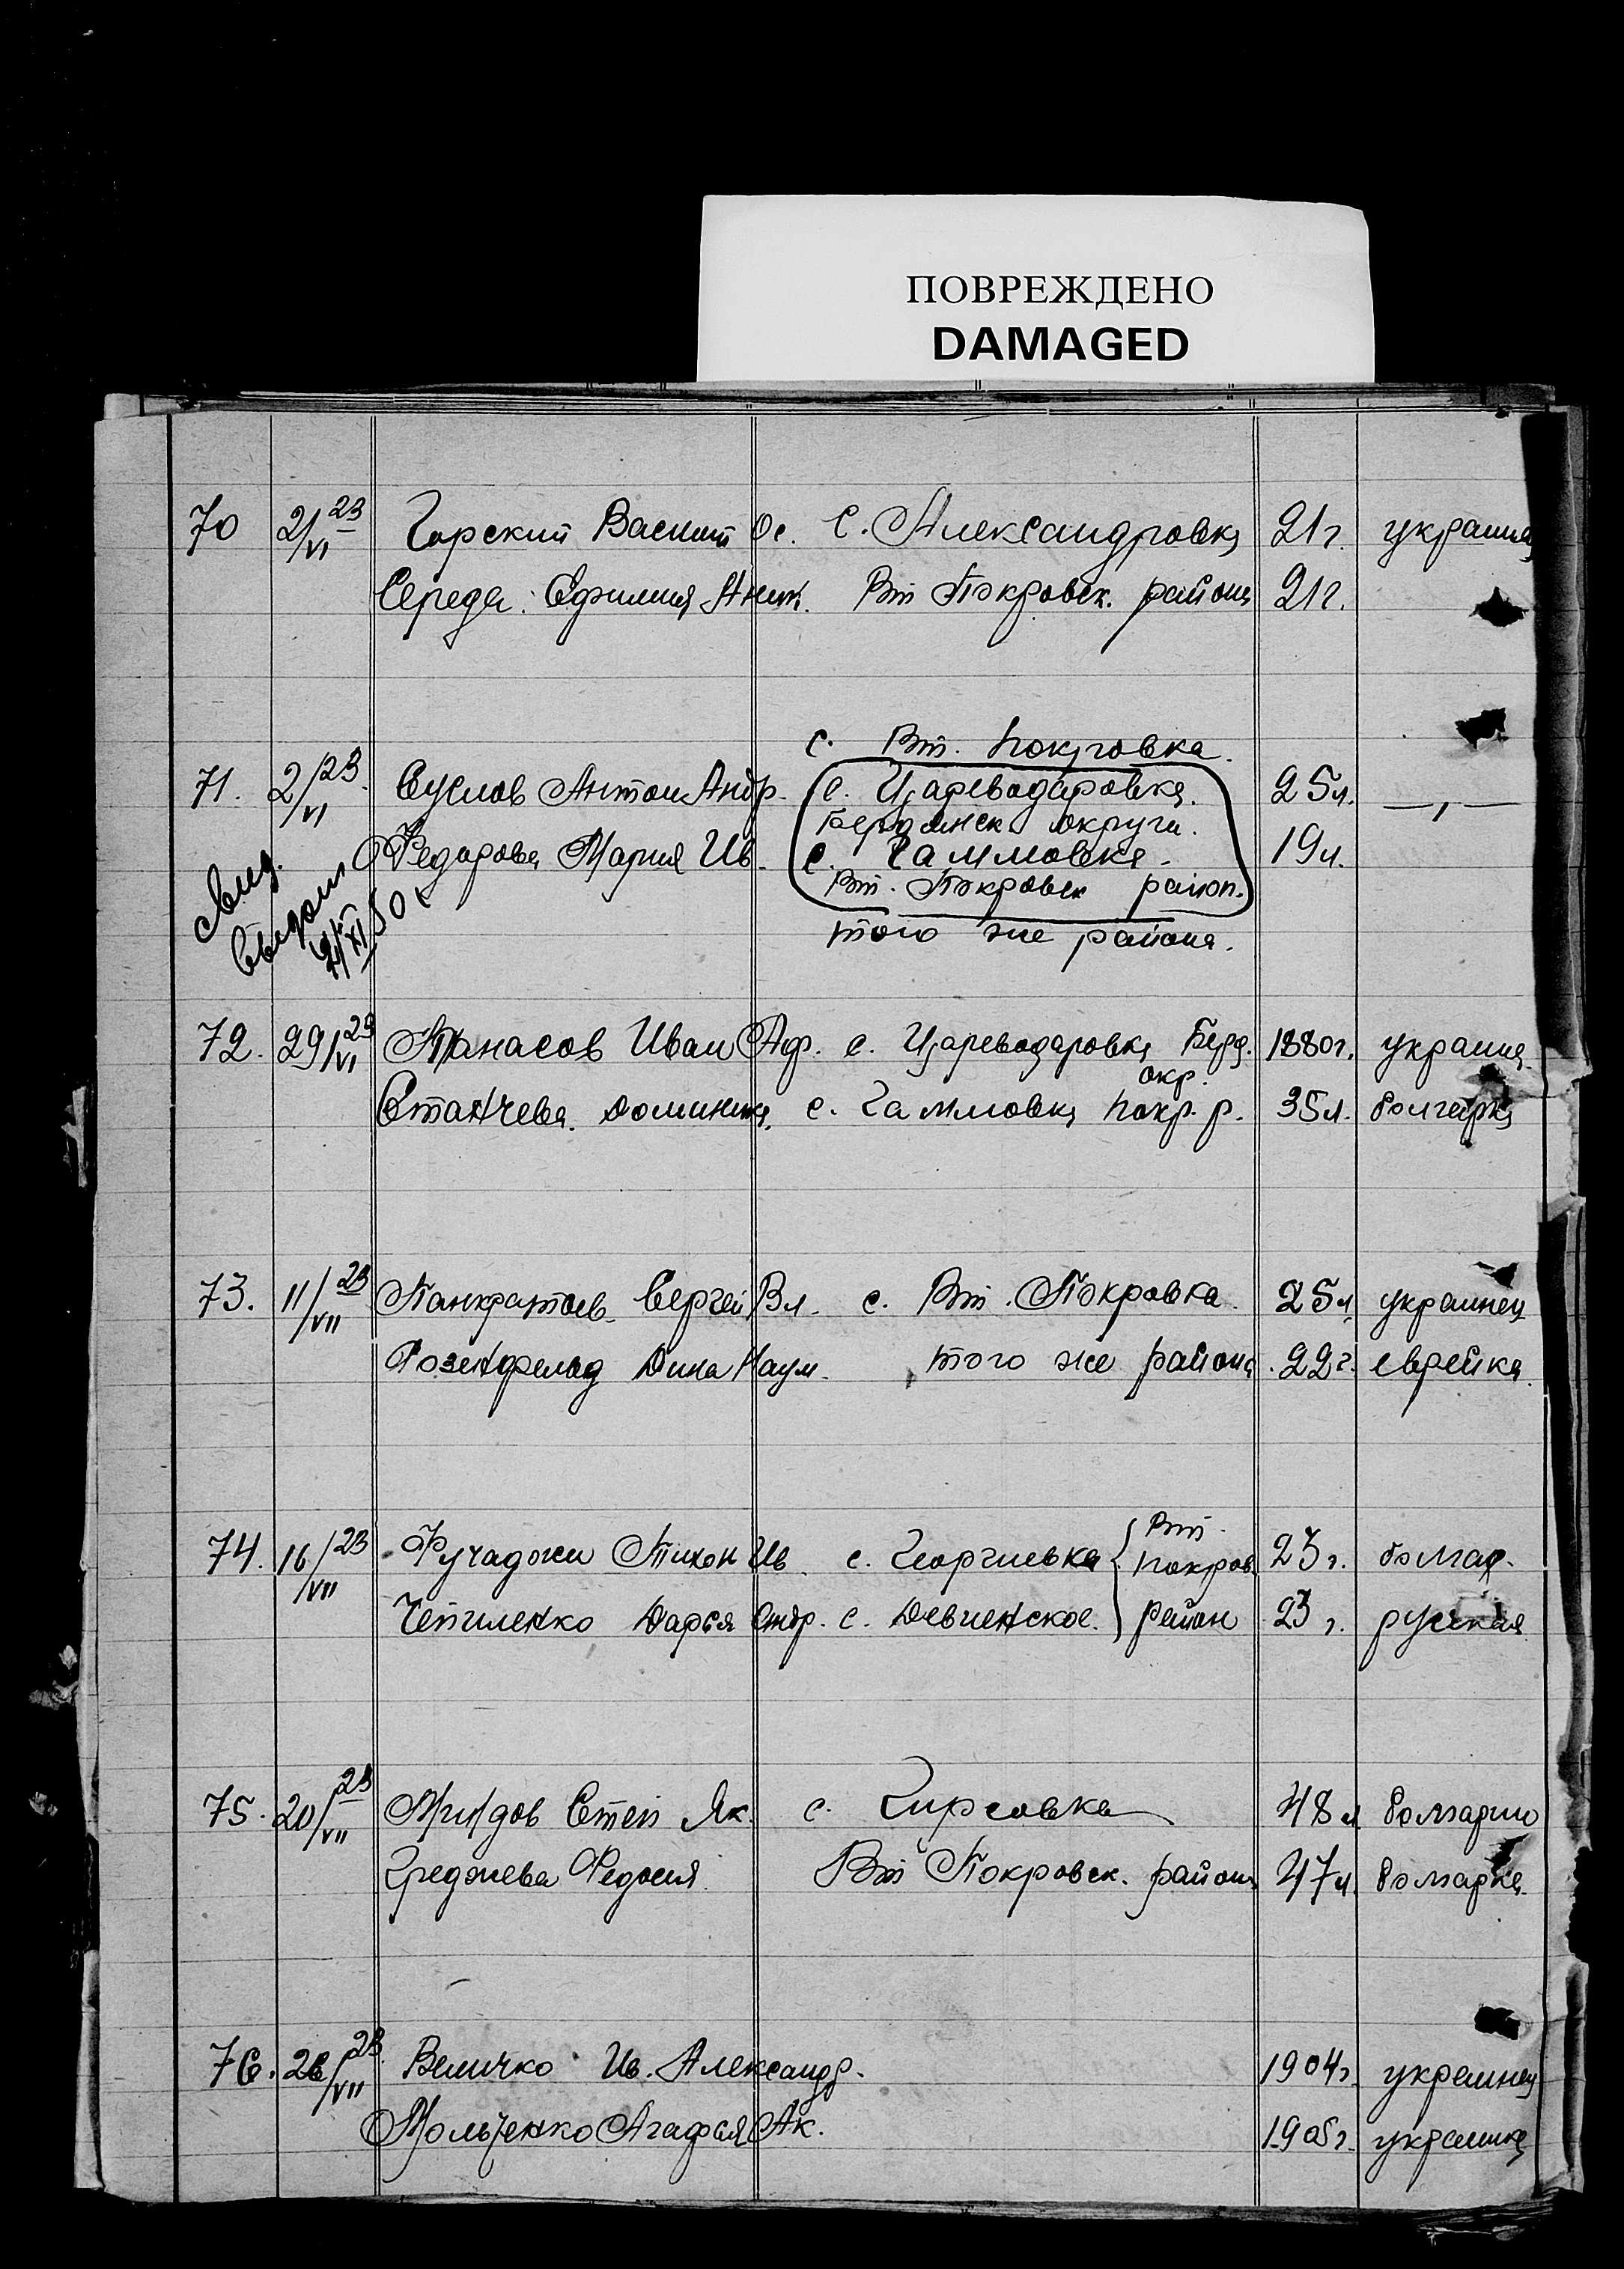 ПОВРЕЖДЕНО
DAMAGED
70 2/VI 23 Горский Василий Ос. С. Александровка 21 г. украин
Середа Ефимия Аник. Вт Покровск. района 21 г.
с. Вт. Покровка.
71. 2/VI 23 Суслов Антон Андр. с. Цареводаровка. 25 л. — „ —
Бердянск округи.
Федорова Мария Ив. с. Гаммовка. 19 л.
Вт. Покровск район.
того же района.
свид.
выдано
50
72. 29/VI 23 Танасов Иван Аф. с. Цареводаровка Берд. 1880 г. украин
окр.
Станчева Доминика. с. Гаммовка Покр. р. 35 л. болгарка
73. 11/VII 23 Панкратов Сергей Вл. с. Вт. Покровка. 25 л. украинец
Розенфельд Дина Наум. того же района. 22 г. еврейка.
Вт.
74. 16/VII 23 Фучаджи Тихон Ив. с. Георгиевка Покров. 23 г. болгар.
Чепиленко Дарья Андр. с. Девненское. район 23 г. русская
75. 20/VII 23 Миндов Степ Як. с. Кирсовка 48 л. болгарин
Греджева Федосия Вт Покровск. района 47 л. болгарка.
76. 28/VII 23 Величко Ив. Александр. 1904 г. украинец
Мольченко Агафья Ак. 1905 г. украинка